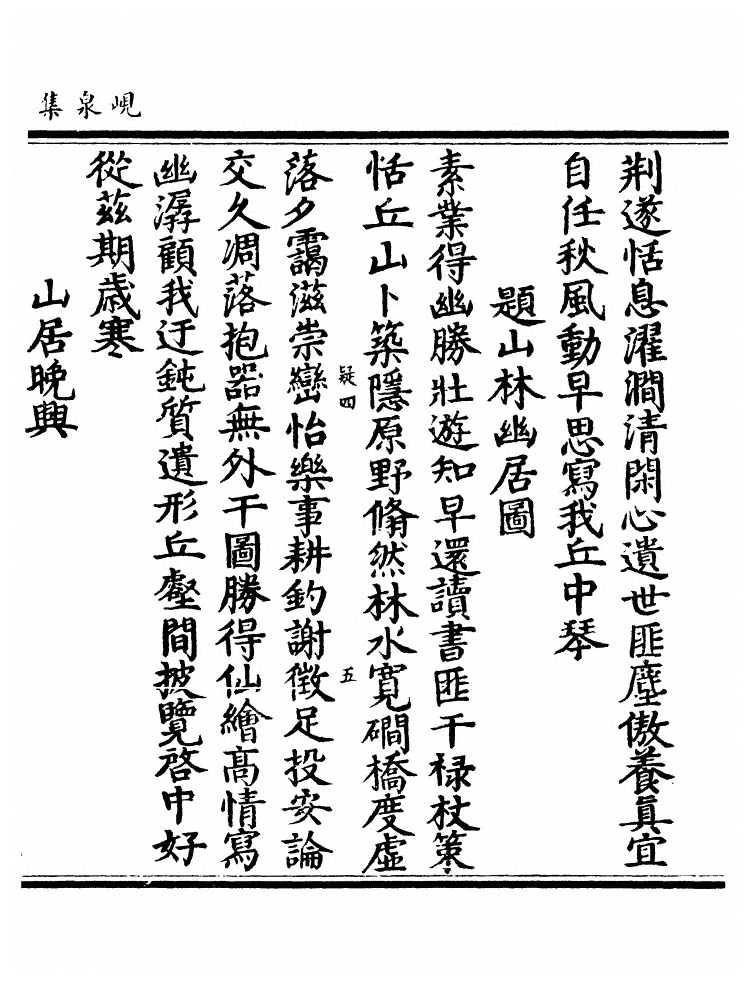 峴泉集
荆遂恬息濯澗清閑心遺世匪塵傲養眞宜
自任秋風動早思寫我丘中琴
題山林幽居圖
素業得幽勝壯遊知早還讀書匪干禄杖策
恬丘山卜築隱原野翛然林水寬磵橋度虛
疑四
五
落夕靄滋崇巒怡樂事耕釣謝徵足投安論
交久凋落抱器無外干圖勝得仙繪高情寫
幽潺顧我迂鈍質遺形丘壑間披覽啓中好
從茲期歲寒
山居晚興